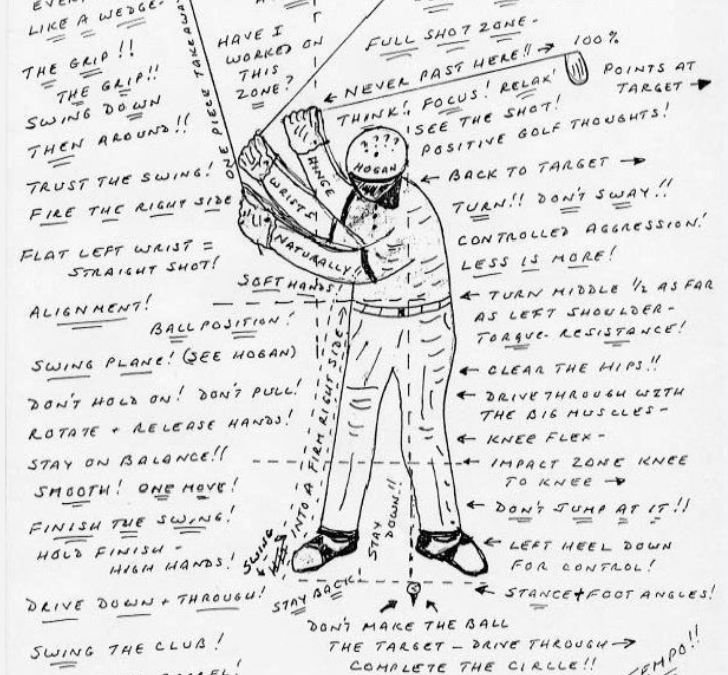 LIKE A WEDGE-
THE GRIP!!
THE GRIP!!
SWING DOWN
THEN AROUND!!
TRUST THE SWING!
FIRE THE RIGHT SIDE
FLAT LEFT WRIST =
STRAIGHT SHOT!
ALIGNMENT!
BALL POSITION!
SWING PLANE! (SEE HOGAN)
DON'T HOLD ON! DON'T PULL!
ROTATE + RELEASE HANDS!
STAY ON BALANCE!!
SMOOTH! ONE MOVE!
FINISH THE SWING!
HOLD FINISH -
HIGH HANDS!
DRIVE DOWN + THROUGH!
SWING THE CLUB!
ONE PIECE TAKEAWAY
HAVE I
WORKED ON
THIS
ZONE?
HINGE
WRISTS
NATURALLY!!
SOFT HANDS!
????
HOGAN
SWING
INTO A FIRM RIGHT SIDE
STAY
DOWN!!
STAY BACK
FULL SHOT ZONE-
100%
NEVER PAST HERE!!
POINTS AT
TARGET
THINK! FOCUS! RELAX!
SEE THE SHOT!
POSITIVE GOLF THOUGHTS!
BACK TO TARGET
TURN!! DON'T SWAY!!
CONTROLLED AGGRESSION!
LESS IS MORE!
TURN MIDDLE 1/2 AS FAR
AS LEFT SHOULDER-
TORQUE-RESISTANCE!
CLEAR THE HIPS!!
DRIVE THROUGH WITH
THE BIG MUSCLES-
KNEE FLEX-
IMPACT ZONE KNEE
TO KNEE
DON'T JUMP AT IT!!
LEFT HEEL DOWN
FOR CONTROL!
STANCE + FOOT ANGLES!
DON'T MAKE THE BALL
THE TARGET - DRIVE THROUGH
COMPLETE THE CIRCLE!!
TEMPO!!